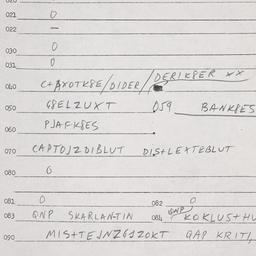 021 0
022 —
030 0
031 0
040 C+AXOTK8E/DIDER/DERIK8ER xx
050 G8ELZUXT 059 BANK8ES
060 PJAFK8ES
070 CAPTOJZDIBLUT DIS+LEXTEBLUT
080 0
081 0 082 0
083 GNP SKARLANTIN 084 GNP KOKLUS+HU
090 MIS+TEJNZGJZOKT GAP KRITI,